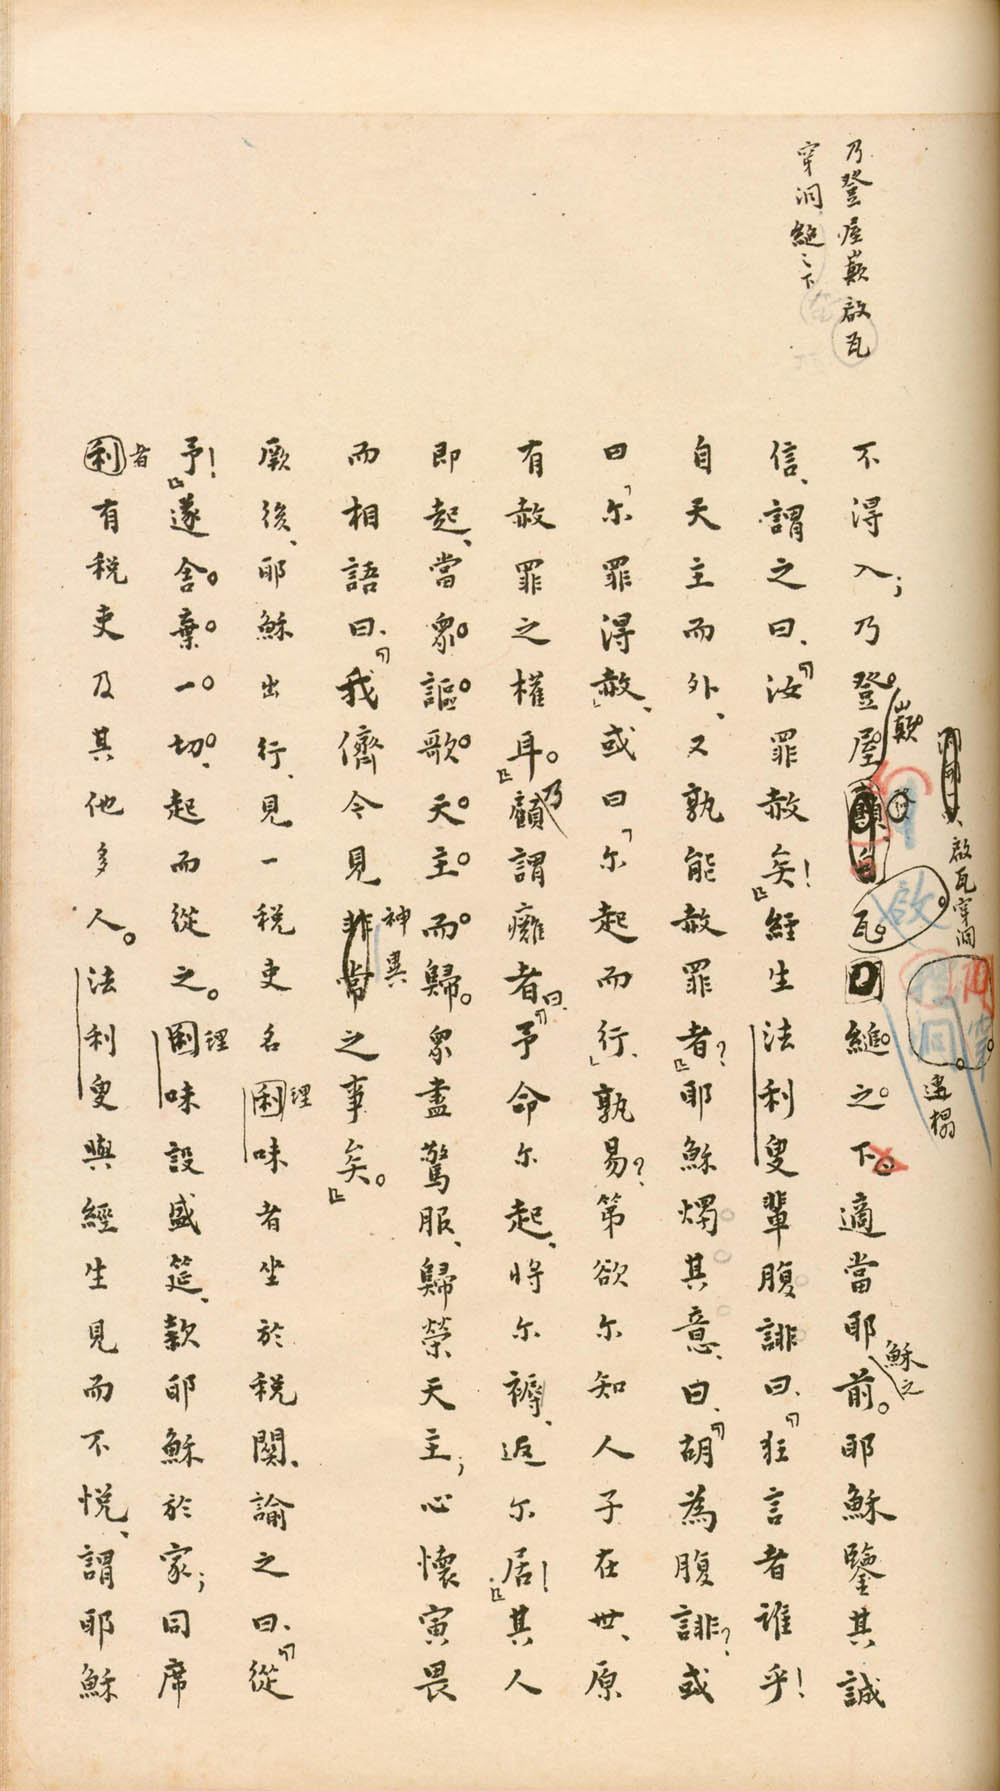 乃登屋巔啟瓦
穿洞縋之下
不得入；乃登屋瓦縋之下。適當耶前。耶穌鑒其誠
巔
啟瓦穿洞
連榻
穌之
信、謂之曰、『汝罪赦矣！』經生法利叟輩腹誹曰、『狂言者誰乎！
自天主而外、又孰能赦罪者？』耶穌燭其意、曰、『胡為腹誹？或
曰「尔罪得赦」、或曰「尔起而行」、孰易？第欲尔知人子在世、原
有赦罪之權耳。』顧謂癱者曰、『予命尔起、將尔褥、返尔居！』其人
乃
即起、當眾謳歌天主而歸。眾盡驚服、歸榮天主；心懷寅畏
而相語曰、『我儕今見非常之事矣。』
神異
厥後、耶穌出行、見一稅吏名利味者坐於稅關、諭之曰、『從
理
予！』遂舍棄一切、起而從之。利味設盛筵、款耶穌於家；同席
理
利有稅吏及其他多人。法利叟與經生見而不悅、謂耶穌
者